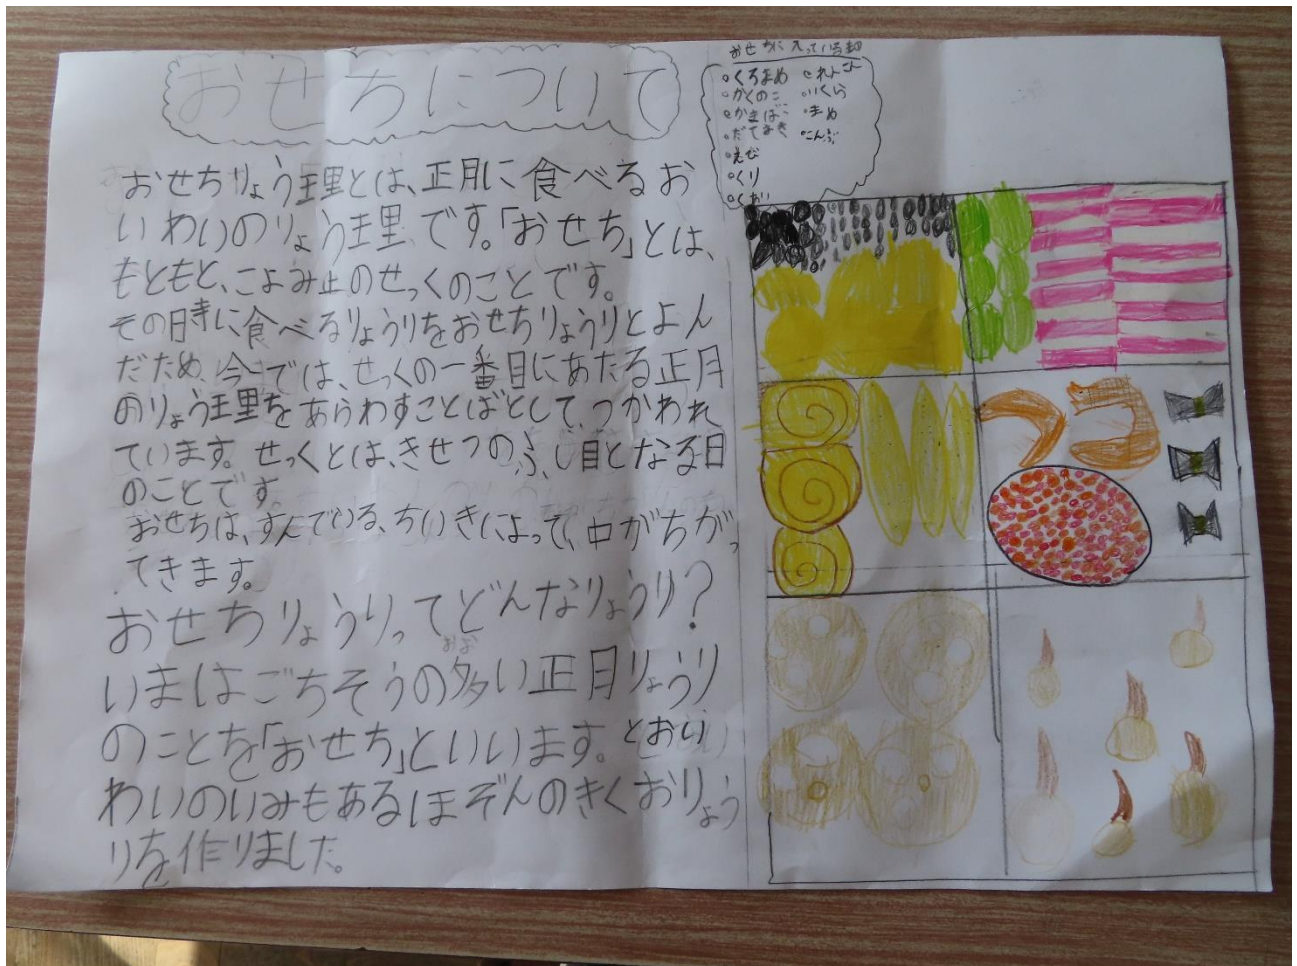 おせちについて
おせちりょう理とは、正月に食べるお
いわいのりょう理です。「おせち」とは、
もともと、こよみ止のせっくのことです。
その日寺に食べるりょうりをおせちりょうりとよん
だため、今では、せっくの一番目にあたる正月
のりょう理をあらわすことばとして、つかわれ
ています。せっくとは、きせつのふし目となる日
のことです。
おせちは、すんでいる、ちいきによって、中がちがっ
てきます。
おせちりょうりってどんなりょうり？
いまはごちそうの多い正月りょうり
おお
のことを「おせち」といいます。とおい
わいのいみもあるほぞんのきくおりょう
りを作りました。
おせちに入っている
・くろまめ
・かくのこ
・かまぼこ
・だてまき
・えび
・くり
・れんこん
・いくら
・まめ
・こんぶ